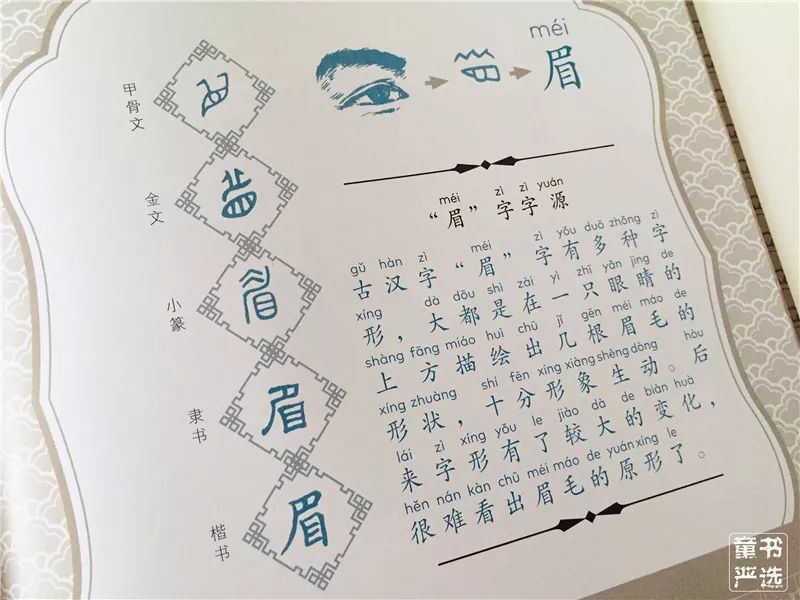 甲骨文
金文
小篆
隶书
楷书
méi
眉
méi zì zì yuán
“眉”字字源
gǔ hàn zì méi zì yǒu duō zhǒng zì
古汉字“眉”字有多种字
xíng dà dōu shì zài yì zhī yǎn jing de
形，大都是在一只眼睛的
shàng fāng miáo huì chū jǐ gēn méi máo de
上方描绘出几根眉毛的
xíng zhuàng shí fēn xíng xiàng shēng dòng hòu
形状，十分形象生动。后
lái zì xíng yǒu le jiào dà de biàn huà
来字形有了较大的变化，
hěn nán kàn chū méi máo de yuán xíng le
很难看出眉毛的原形了。
童书
严选